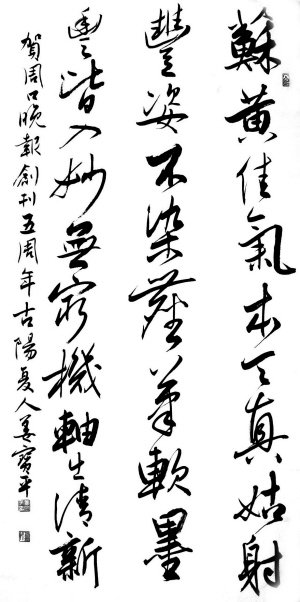 蘇黄佳氣本天真姑射
豐姿不染塵筆軟墨
豐皆入妙無窮機軸出清新
賀周口晚報創刊五周年古陽夏人姜寶平